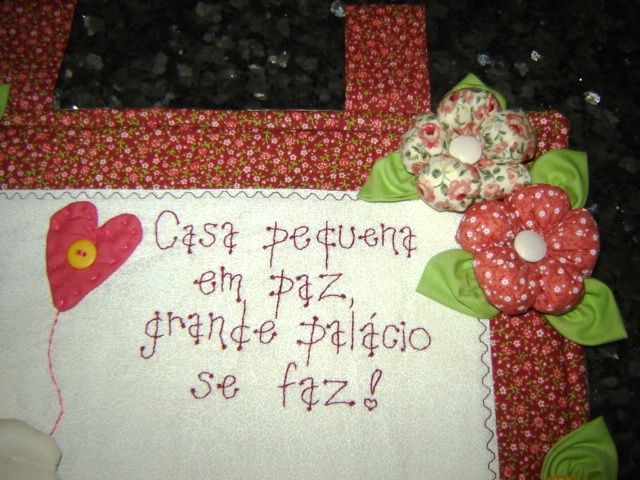 Casa pequena
em paz,
grande palácio
se faz!